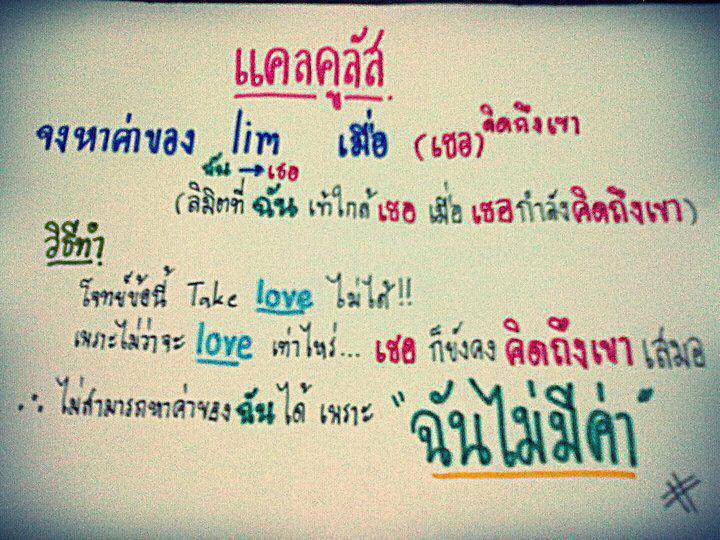 แคลคูลัส
จงหาค่าของ lim เมื่อ (เธอ)คิดถึงเขา
ฉัน→เธอ
(ลิมิตที่ ฉัน เข้าใกล้ เธอ เมื่อ เธอกำลังคิดถึงเขา)
วิธีทำ
โจทย์ข้อนี้ Take love ไม่ได้!!
เพราะไม่ว่าจะ love เท่าไหร่... เธอ ก็ยังคง คิดถึงเขา เสมอ
∴ ไม่สามารถหาค่าของ ฉัน ได้ เพราะ "ฉันไม่มีค่า"
#